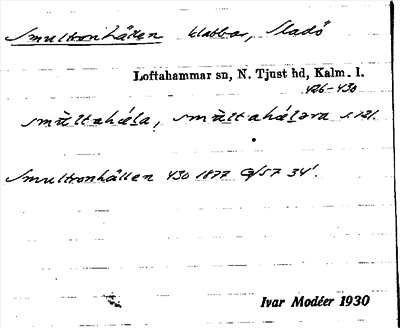 Smultronhällen klabbar, Sladö
Loftahammar sn, N. Tjust hd, Kalm. l.
426-430
s. 121.
Smultronhällen 430 1877 G/57 34'.
Ivar Modéer 1930